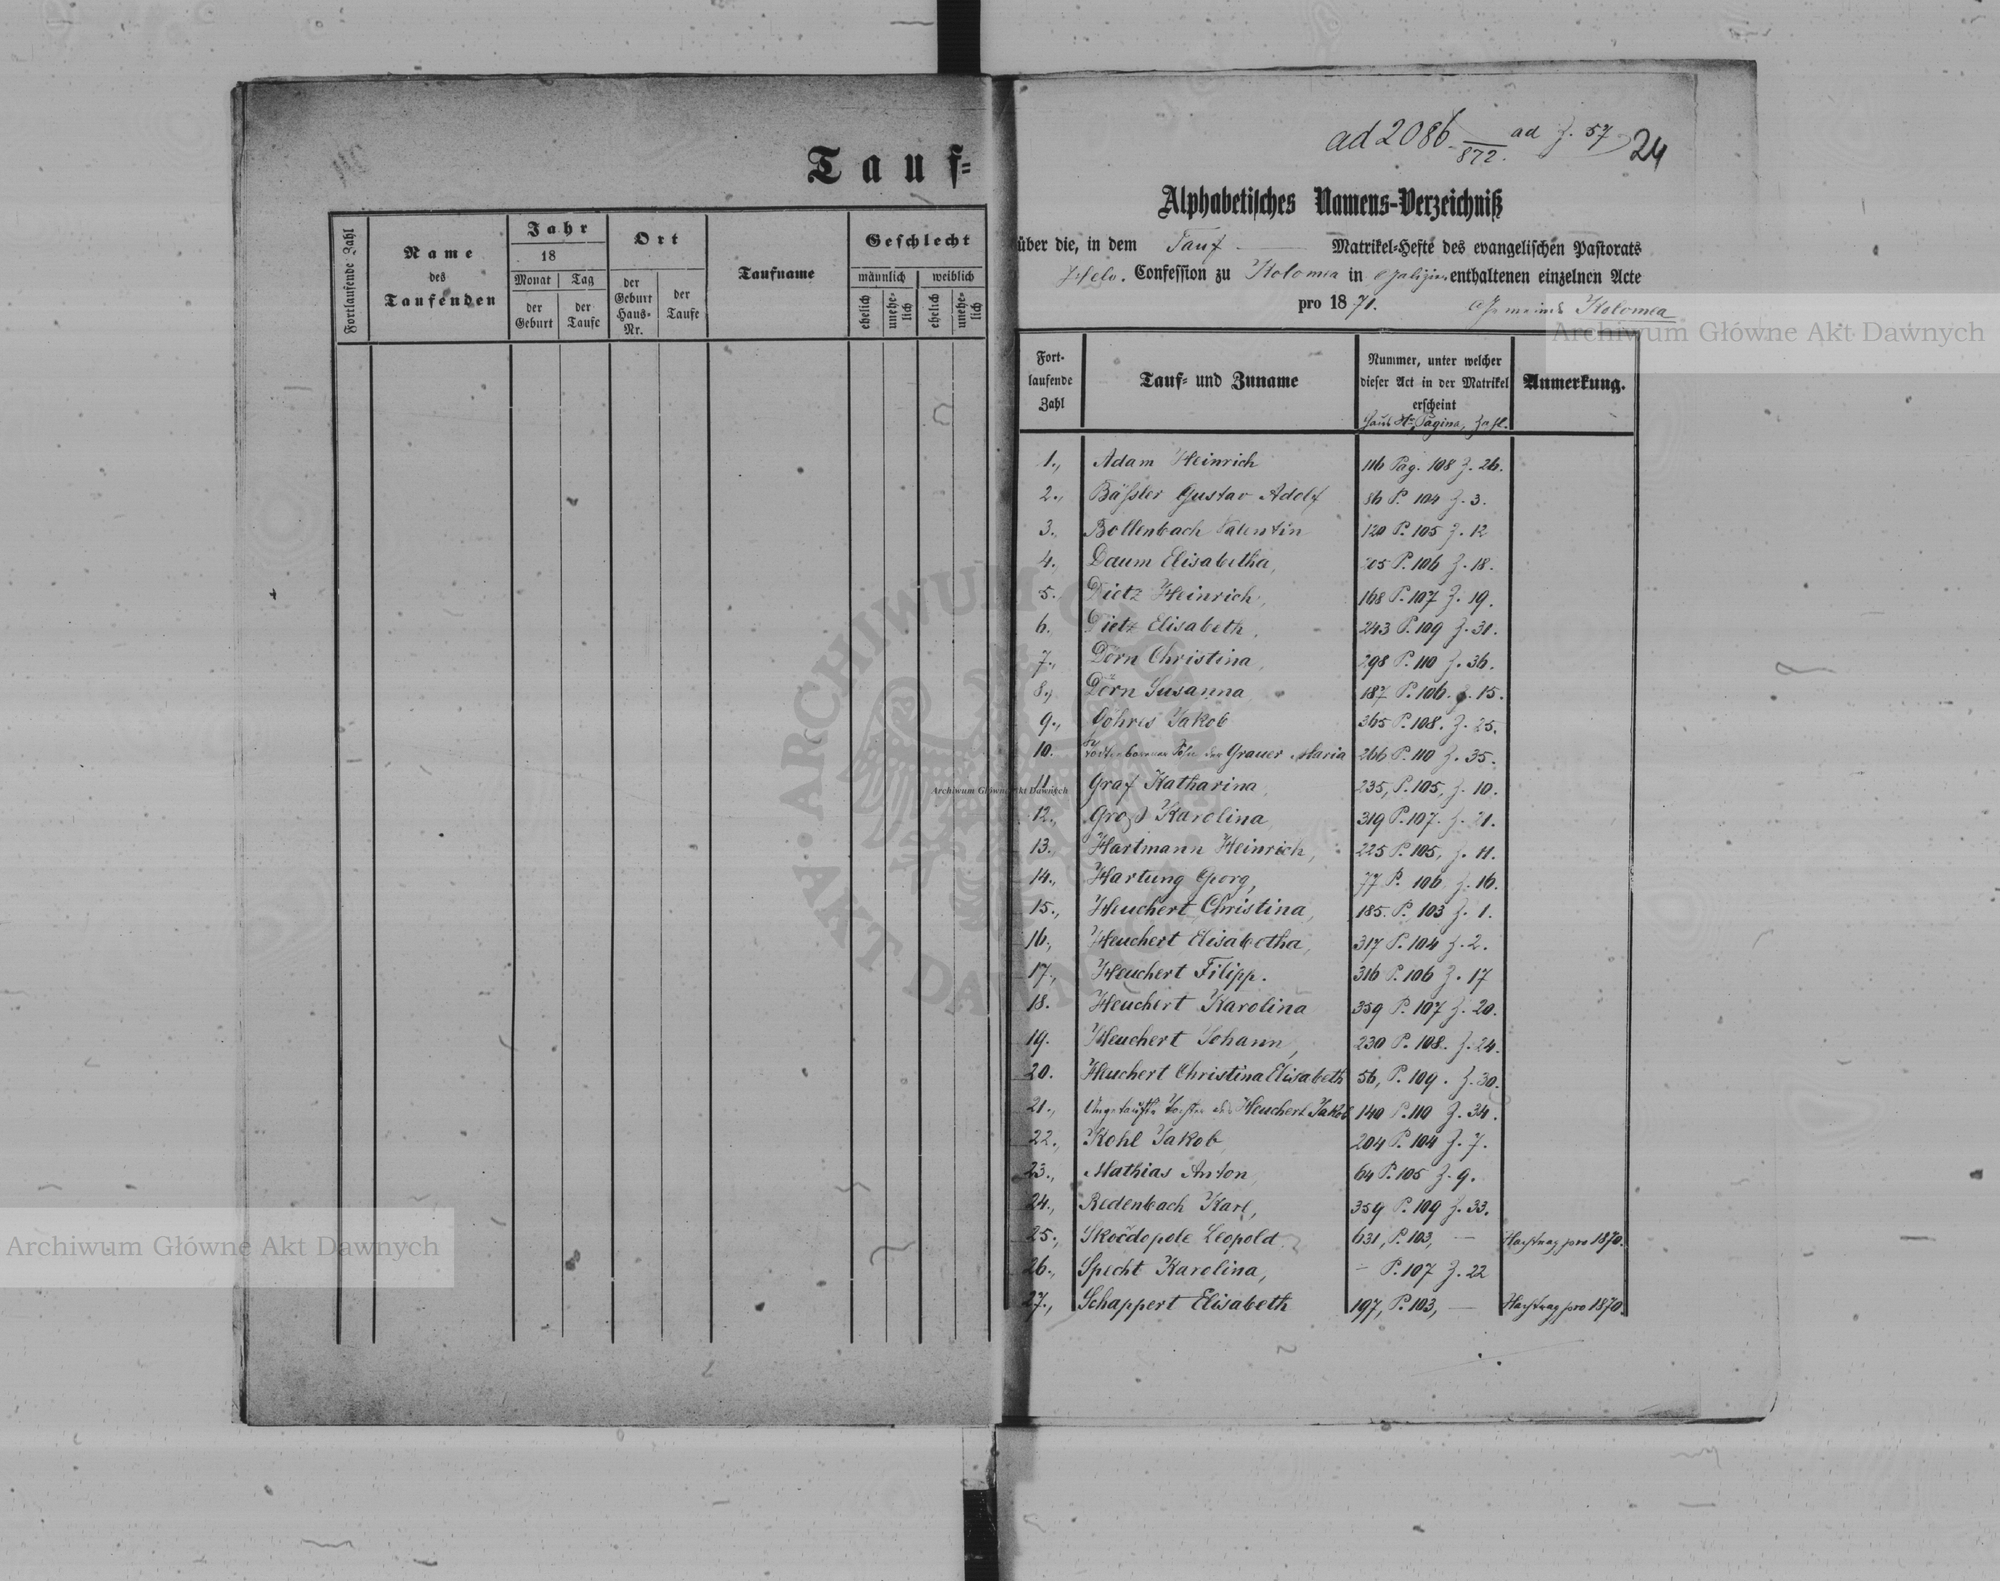 Tauf=
Fortlaufende Zahl
Name
des
Taufenden
Jahr
18
Monat
Tag
der
Geburt
der
Taufe
Ort
der
Geburt
Haus-
Nr.
der
Taufe
Taufname
Geschlecht
männlich
weiblich
ehelich
unehe-
lich
ehelich
unehe-
lich
ad 2086/872. ad Z. 57 24
Alphabetisches Namens-Verzeichniß
über die, in dem Tauf Matrikel-Hefte des evangelischen Pastorats
Helv. Confession zu Kolomea in Galizien enthaltenen einzelnen Acte
pro 1871. Gemeinde Kolomea
Fort-
laufende
Zahl
Tauf- und Zuname
Nummer, unter welcher
dieser Act in der Matrikel
erscheint
Haus Nr. Pagina, Zahl.
Anmerkung.
1., Adam Heinrich 116 Pag. 108 Z. 26.
2., Bäßler Gustav Adolf 86 P. 104 Z. 3.
3., Bollenbach Valentin 120 P. 105 Z. 12
4., Daum Elisabetha, 205 P. 106 Z. 18.
5. Dietz Heinrich, 168 P. 107 Z. 19.
6., Dietz Elisabeth, 243 P. 109 Z. 31.
7., Dörn Christina, 298 P. 110 Z. 36.
8., Dörn Susanna, 187 P. 106. Z. 15.
9., Jakob 265 P. 108. Z. 25.
10. Grauer Maria 266 P. 110 Z. 35.
11. Graf Katharina, 235, P. 105, Z. 10.
12., Karolina 319 P. 107. Z. 21.
13. Hartmann Heinrich, 225 P. 105, Z. 11.
14., Hartung Georg, 77 P. 106 Z. 16.
15., Heuchert Christina, 185. P. 103 Z. 1.
16., Heuchert Elisabetha, 317 P. 104 Z. 2.
17., Heuchert Filipp. 316 P. 106 Z. 17
18. Heuchert Karolina 359 P. 107 Z. 20.
19. Heuchert Johann, 230 P. 108. Z. 24.
20. Heuchert Christina Elisabeth 56, P. 109. Z. 30.
21., Ungetaufte Tochter des Heuchert Jakob 140 P. 110 Z. 34.
22., Kohl Jakob, 204 P. 104 Z. 7.
23., Mathias Anton, 64 P. 105 Z. 9.
24., Redenbach Karl, 359 P. 109 Z. 33.
25., Skočdopole Leopold 631, P. 103, — Nachtrag pro 1870.
26., Specht Karolina, — P. 107 Z. 22
27., Schappert Elisabeth 197, P. 103, — Nachtrag pro 1870.
Archiwum Główne Akt Dawnych
ARCHIWUM GŁÓWNE · AKT DAWNYCH ·
Archiwum Główne Akt Dawnych
Archiwum Główne Akt Dawnych